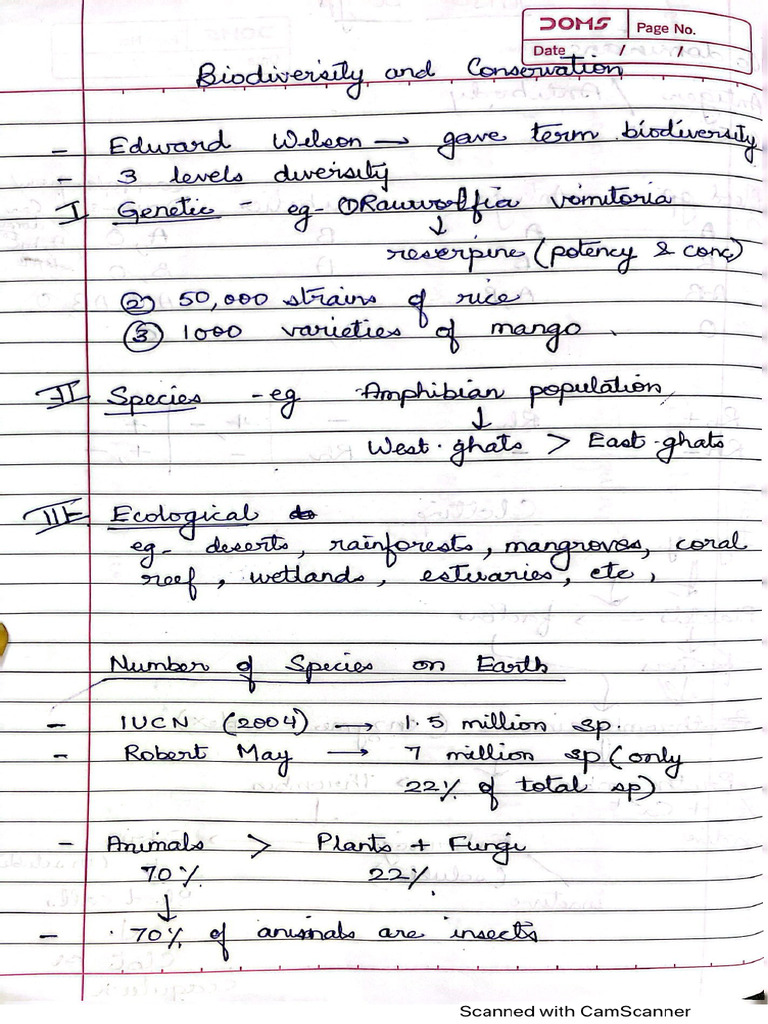 DOMS Page No.
Date / /
Biodiversity and Conservation
- Edward Wilson → gave term biodiversity
- 3 levels diversity
I Genetic - eg- ① Rauwolfia vomitoria
↓
reserpine (potency & conc)
② 50,000 strains of rice
③ 1000 varieties of mango.
II Species - eg Amphibian population
↓
West. ghats > East. ghats
III Ecological
eg- deserts, rainforests, mangroves, coral
reef, wetlands, estuaries, etc,
Number of Species on Earth
- IUCN (2004) → 1.5 million sp.
- Robert May → 7 million sp (only
22% of total sp)
- Animals > Plants + Fungi
70% 22%
↓
- 70% of animals are insects
Scanned with CamScanner